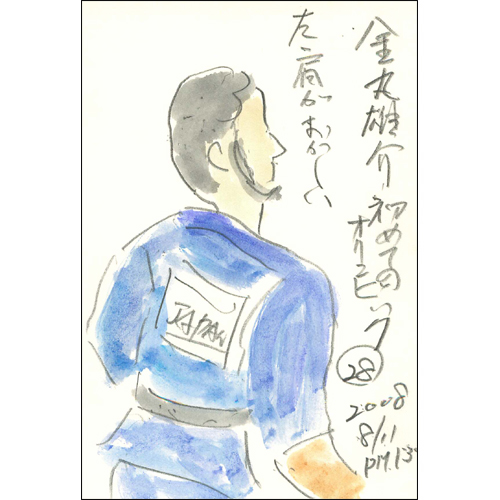 金丸雄介初めての
オリンピック
㉘
2008
8/11
PM.13°
た 肩がおかしい
JAPAN